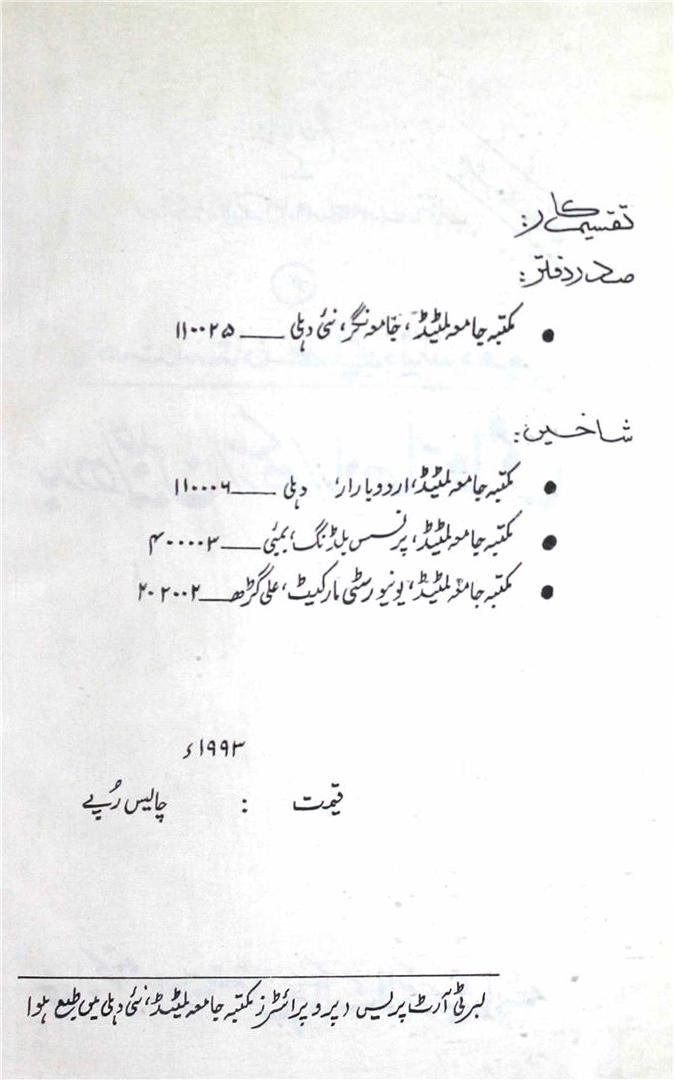 تقسیم کار:
صدر دفتر:
● مکتبہ جامعہ لمیٹڈ، جامعہ نگر، نئی دہلی ــــ ۱۱۰۰۲۵
شاخیں:
● مکتبہ جامعہ لمیٹڈ، اردو بازار، دہلی ــــ ۱۱۰۰۰۶
● مکتبہ جامعہ لمیٹڈ، پرنسس بلڈنگ، بمبئی ــــ ۴۰۰۰۰۳
● مکتبہ جامعہ لمیٹڈ، یونیورسٹی مارکیٹ، علی گڑھ ــــ ۲۰۲۰۰۲
۱۹۹۳ء
قیمت : چالیس رُپے
لبرٹی آرٹ پریس (پروپرائٹرز مکتبہ جامعہ لمیٹڈ، نئی دہلی میں طبع ہوا